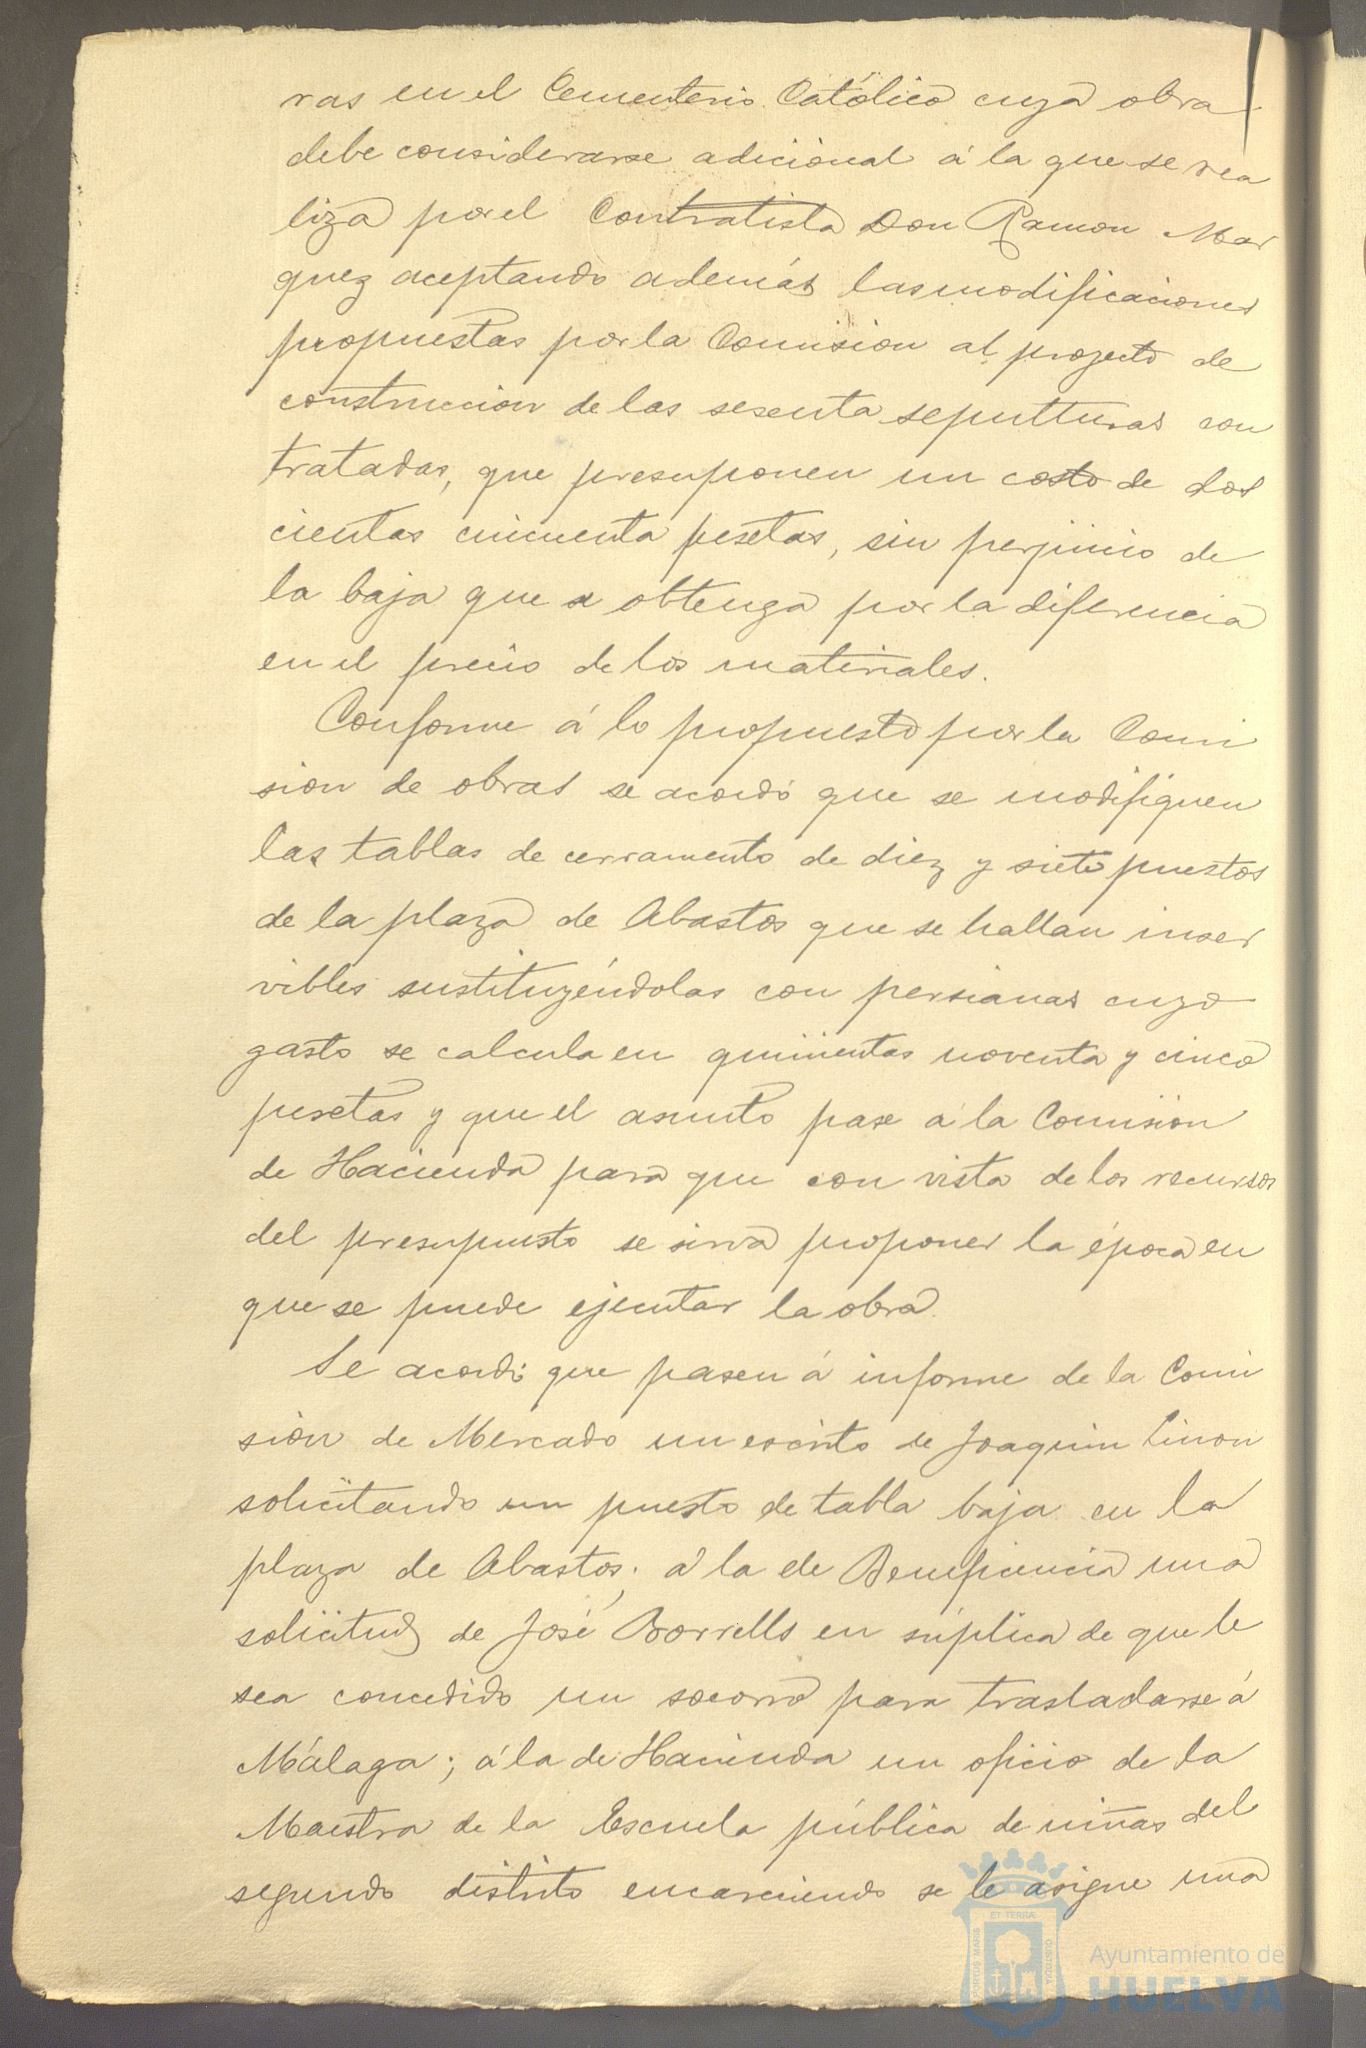 ras en el Cementerio Católico cuya obra
debe considerarse adicional á la que se rea
liza por el Contratista Don Ramon Mar
quez aceptando además las modificaciones
propuestas por la Comision al proyecto de
construccion de las sesenta sepulturas con
tratadas, que presuponen un costo de dos
cientas cincuenta pesetas, sin perjuicio de
la baja que se obtenga por la diferencia
en el precio de los materiales.
Conforme á lo propuesto por la Comi
sion de obras se acordó que se modifiquen
las tablas de cerramento de diez y siete puestos
de la plaza de Abastos que se hallan inser
vibles sustituyéndolas con persianas cuyo
gasto se calcula en quinientas noventa y cinco
pesetas y que el asunto pase á la Comision
de Hacienda para que con vista de los recursos
del presupuesto se sirva proponer la época en
que se puede ejecutar la obra.
Se acordó que pasen á informe de la Comi
sion de Mercado un escrito de Joaquin Linon
solicitando un puesto de tabla baja en la
plaza de Abastos; á la de Beneficencia una
solicitud de José Borrells en súplica de que le
sea concedido un socorro para trasladarse á
Málaga; á la de Hacienda un oficio de la
Maestra de la Escuela pública de niñas del
segundo distrito encareciendo se le asigne una
PORTUS MARIS
ET TERRÆ
CUSTODIA
Ayuntamiento de
HUELVA